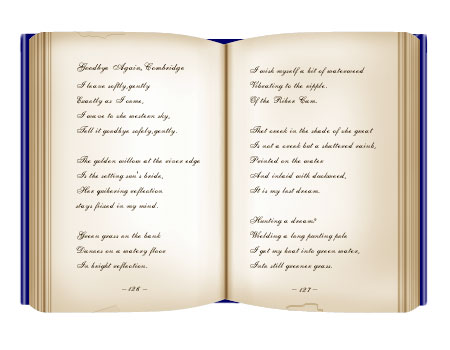 Goodbye Again, Cambridge
I leave softly, gently
Exactly as I came,
I wave to the western sky,
Tell it goodbye softly, gently.
The golden willow at the river edge
Is the setting sun's bride,
Her quivering reflection
stays fixed in my mind.
Green grass on the bank
Dances on a watery floor
In bright reflection.
– 126 –
I wish myself a bit of waterweed
Vibrating to the ripple.
Of the River Cam.
That creek in the shade of the great
Is not a creek but a shattered rainb,
Printed on the water
And inlaid with duckweed,
It is my lost dream.
Hunting a dream?
Wielding a long punting pole
I get my boat into green water,
Into still greener grass.
– 127 –